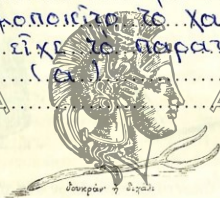 μοποιεῖτο τὸ χα
εἶχε τὸ παρατ
(α.)
δουκράν ἢ διχάλι